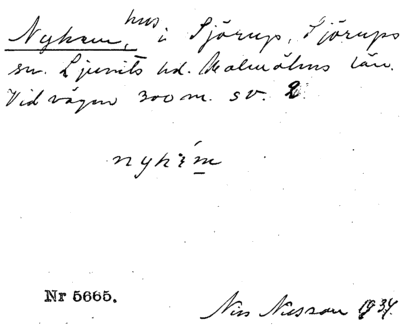 Nyhem, hus i Sjörup, Sjörups
sn. Ljunits hd. Malmöhus län.
Vid vägen 300 m. sv. 2.
nyhem
Nr 5665.
Nils Nilsson 1934.